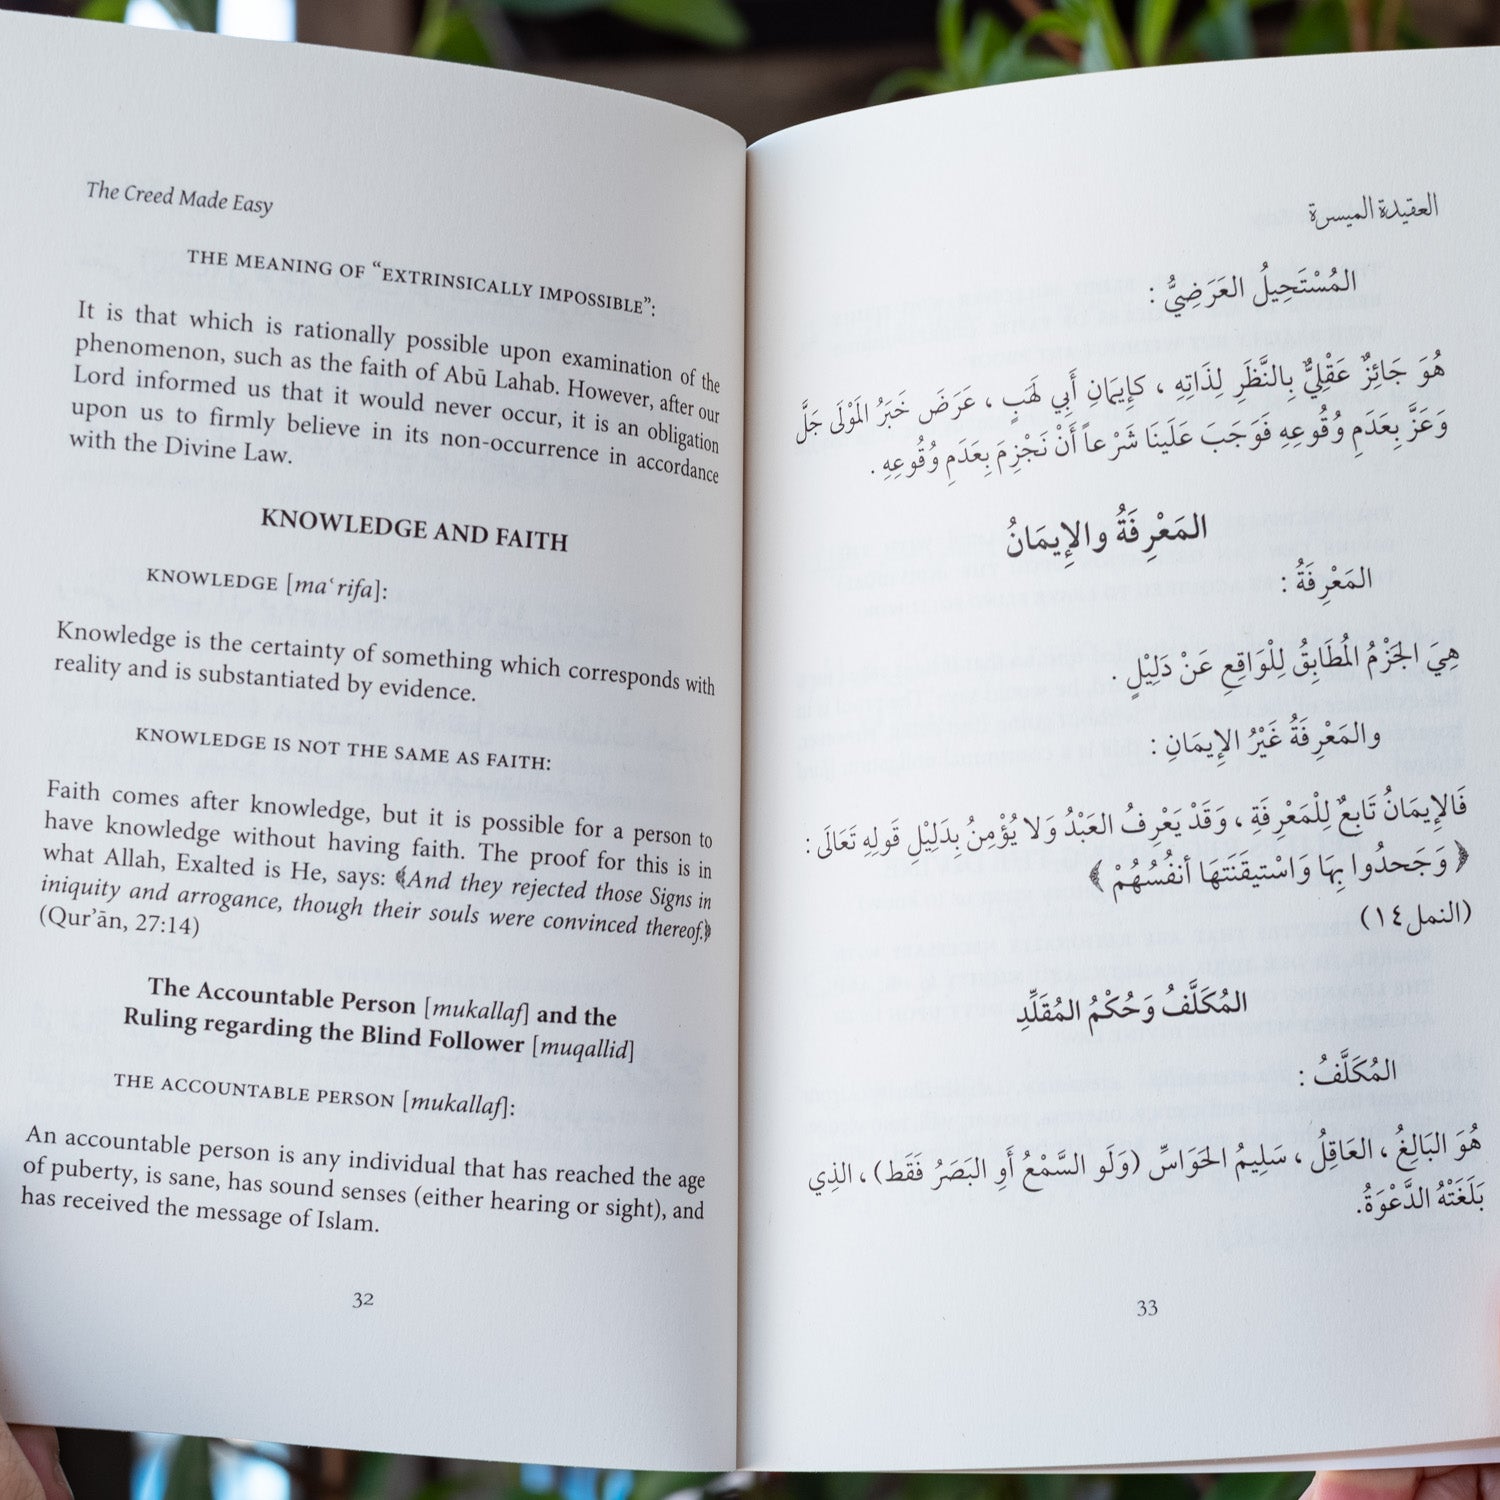 The Creed Made Easy
THE MEANING OF “EXTRINSICALLY IMPOSSIBLE”:
It is that which is rationally possible upon examination of the
phenomenon, such as the faith of Abū Lahab. However, after our
Lord informed us that it would never occur, it is an obligation
upon us to firmly believe in its non-occurrence in accordance
with the Divine Law.
KNOWLEDGE AND FAITH
KNOWLEDGE [maʿrifa]:
Knowledge is the certainty of something which corresponds with
reality and is substantiated by evidence.
KNOWLEDGE IS NOT THE SAME AS FAITH:
Faith comes after knowledge, but it is possible for a person to
have knowledge without having faith. The proof for this is in
what Allah, Exalted is He, says: ﴾And they rejected those Signs in
iniquity and arrogance, though their souls were convinced thereof.﴿
(Qur’ān, 27:14)
The Accountable Person [mukallaf] and the
Ruling regarding the Blind Follower [muqallid]
THE ACCOUNTABLE PERSON [mukallaf]:
An accountable person is any individual that has reached the age
of puberty, is sane, has sound senses (either hearing or sight), and
has received the message of Islam.
32
العقيدة الميسرة
المُسْتَحِيلُ العَرَضِيُّ :
هُوَ جَائِزٌ عَقْلِيٌّ بِالنَّظَرِ لِذَاتِهِ ، كَإِيمَانِ أَبِي لَهَبٍ ، عَرَضَ خَبَرُ المَوْلَى جَلَّ
وَعَزَّ بِعَدَمِ وُقُوعِهِ فَوَجَبَ عَلَينَا شَرْعاً أَنْ نَجْزِمَ بِعَدَمِ وُقُوعِهِ .
المَعْرِفَةُ والإِيمَانُ
المَعْرِفَةُ :
هِيَ الجَزْمُ المُطَابِقُ لِلْوَاقِعِ عَنْ دَلِيْلٍ .
والمَعْرِفَةُ غَيْرُ الإِيمَانِ :
فَالإِيمَانُ تَابِعٌ لِلْمَعْرِفَةِ ، وَقَدْ يَعْرِفُ العَبْدُ وَلا يُؤْمِنُ بِدَلِيْلِ قَولِهِ تَعَالَى :
﴿ وَجَحدُوا بِهَا وَاسْتيقَنَتَهَا أنفُسُهُمْ ﴾
(النمل١٤)
المُكَلَّفُ وَحُكْمُ المُقَلِّدِ
المُكَلَّفُ :
هُوَ البَالِغُ ، العَاقِلُ ، سَلِيمُ الحَوَاسِّ (وَلَو السَّمْعُ أَوِ البَصَرُ فَقَط) ، الذِي
بَلَغَتْهُ الدَّعْوَةُ.
33